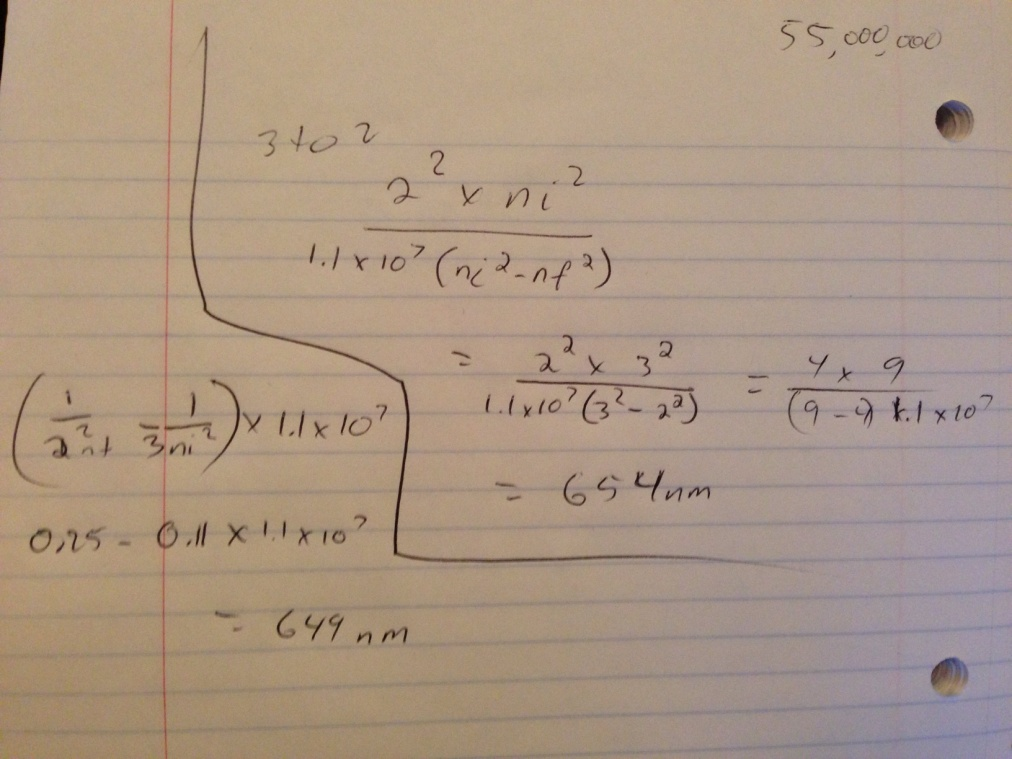 55,000,000
3 to 2
2² x ni²
1.1 x 10⁷ (ni² - nf²)
= 2² x 3² / 1.1x10⁷ (3² - 2²) = 4 x 9 / (9 - 4) 1.1 x 10⁷
= 654nm
(1/2² - 1/3 ni²) x 1.1 x 10⁷
0.25 - 0.11 x 1.1 x 10⁷
= 649 nm